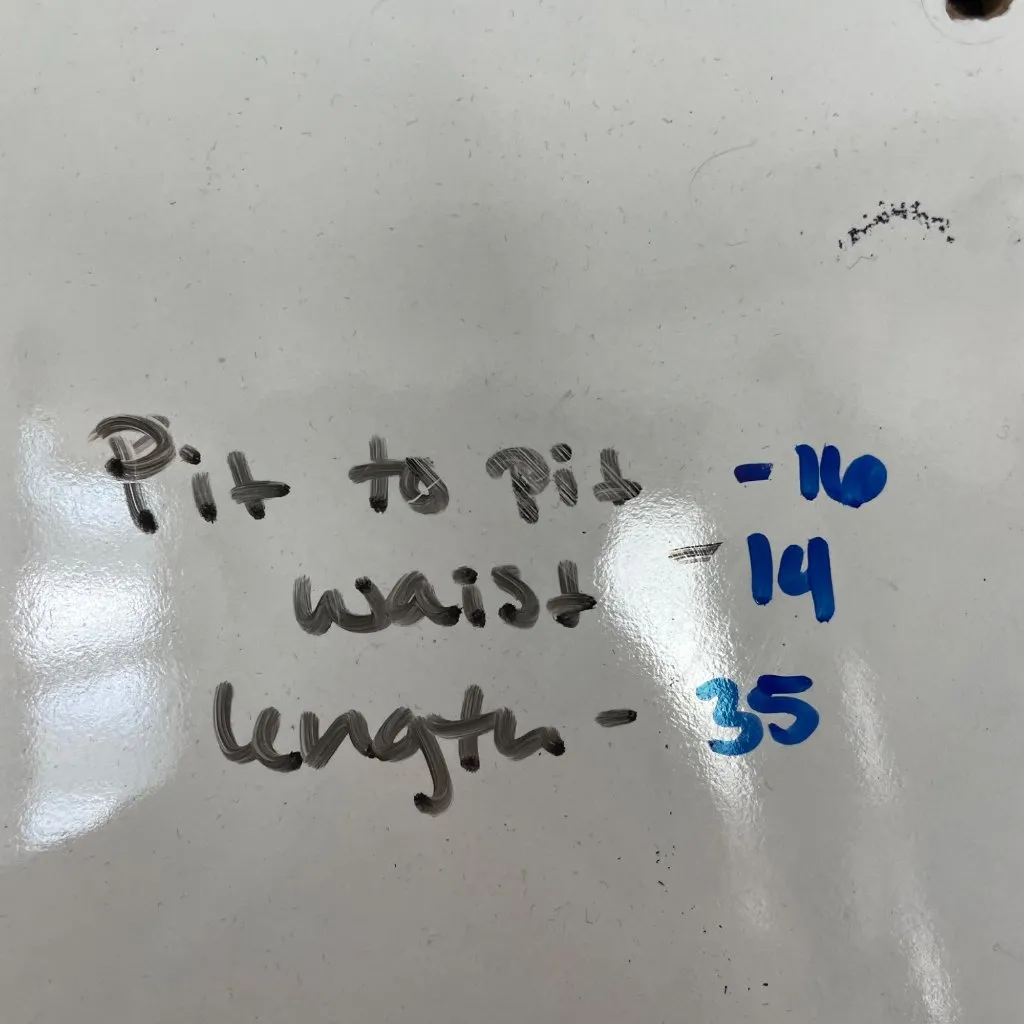 Pit to pit - 16
waist - 14
length - 35